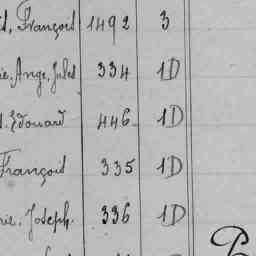 François 1492 3
Ange, Jules 334 1D
Edouard 446 1D
François 335 1D
Joseph. 336 1D